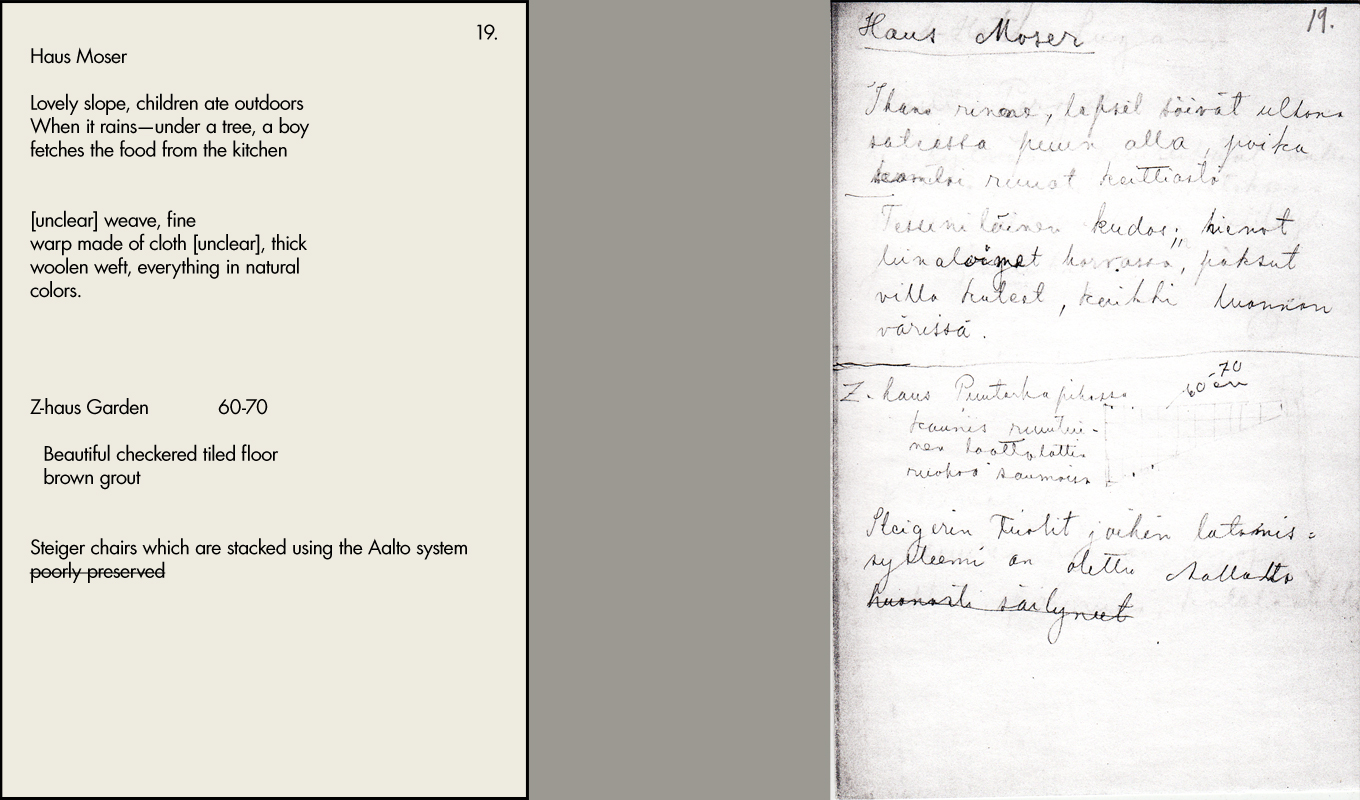 19.
Haus Moser
Lovely slope, children ate outdoors
When it rains—under a tree, a boy
fetches the food from the kitchen
[unclear] weave, fine
warp made of cloth [unclear], thick
woolen weft, everything in natural
colors.
Z-haus Garden 60-70
Beautiful checkered tiled floor
brown grout
Steiger chairs which are stacked using the Aalto system
poorly preserved
19.
Haus Moser
Ihana rinne, lapset söivät ulkona
sateessa puun alla, poika
ruuat keittiöstä
kudos; hienot
paksut
villa kuteet, kaikki luonnon
värissä.
Z-haus Puutarhapihassa
60 70 cm
kaunis ruutui-
nen laattalattia
saumoissa
Steigerin Tuolit joihin latomis=
systeemi on otettu Aallolta
huonosti säilyneet